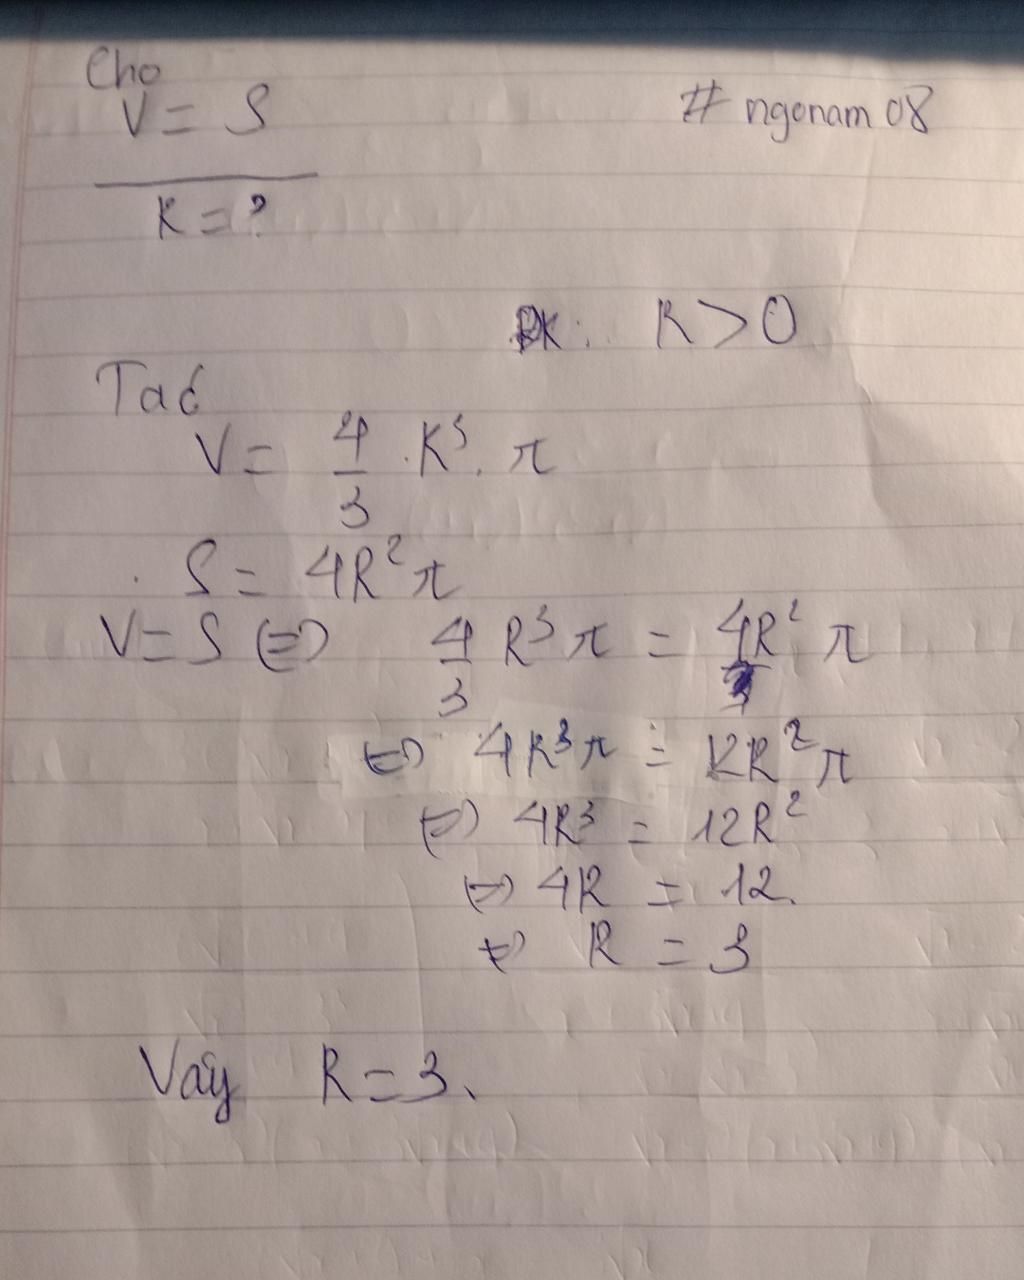 Cho
V = S
# ngonam 08
R = ?
ĐK: R > 0
Ta có
V = 4/3 . R³ . π
S = 4R²π
V = S ⇔ 4/3 R³ π = 4R² π
⇔ 4R³π = 12R²π
⇔ 4R³ = 12R²
⇔ 4R = 12.
⇔ R = 3
Vậy R = 3.